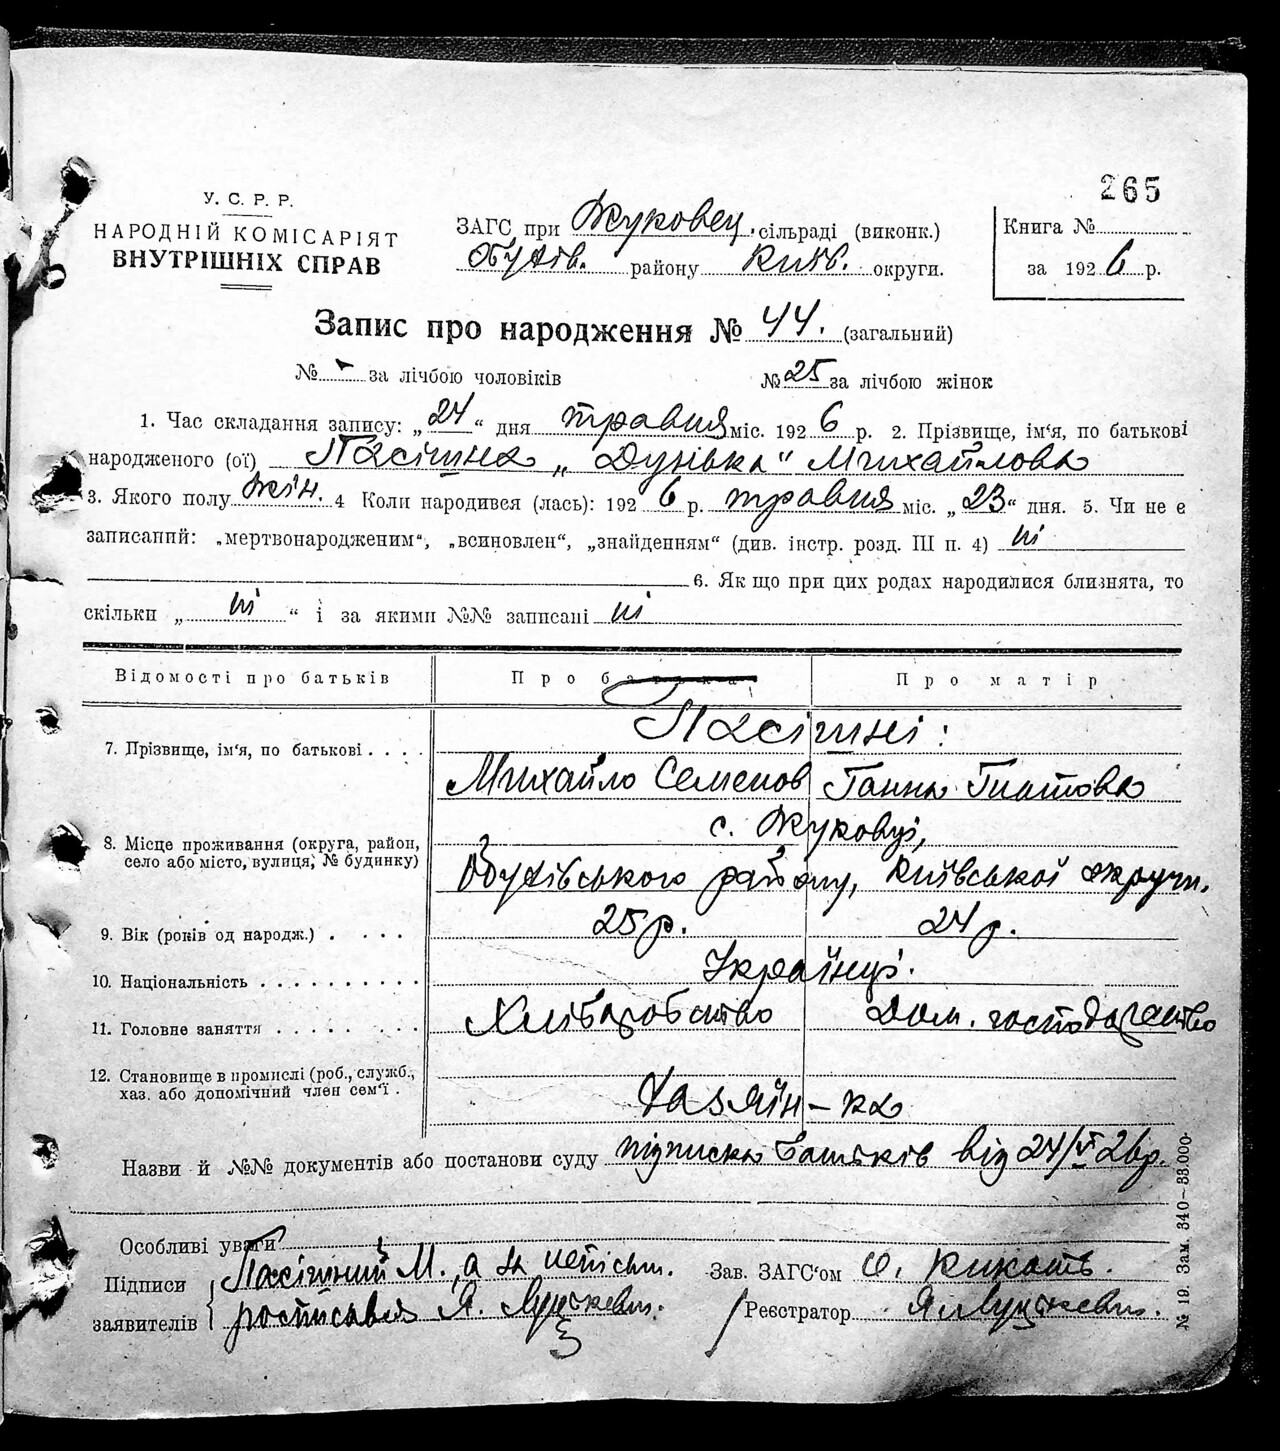 265
У. С. Р. Р.
НАРОДНІЙ КОМІСАРІЯТ
ВНУТРІШНІХ СПРАВ
ЗАГС при Жуковец. сільраді (виконк.)
Обухів. району Київ. округи.
Книга №
за 1926 р.
Запис про народження № 44. (загальний)
№ - за лічбою чоловіків № 25 за лічбою жінок
1. Час складання запису: „24“ дня травня міс. 1926 р. 2. Прізвище, ім'я, по батькові
народженого (ої) Пасішна „Дунька“ Михайлова
3. Якого полу жін. 4 Коли народився (лась): 1926 р. травня міс. „23“ дня. 5. Чи не є
записаний: „мертвонародженим“, „всиновлен“, „знайденням“ (див. інстр. розд. III п. 4) ні
6. Як що при цих родах народилися близнята, то
скільки „ ні “ і за якими №№ записані ні
Відомості про батьків Про батька Про матір
7. Прізвище, ім'я, по батькові . . . . Пасішні:
Михайло Семенов Ганна Гнатова
8. Місце проживання (округа, район, село або місто, вулиця, № будинку) с. Жуковці,
Обухівського району, Київської округи.
9. Вік (років од народж.) . . . . 25 р. 24 р.
10. Національність . . . . . . . . . . Українці.
11. Головне заняття . . . . . . . . Хліборобство Дом. господарство
12. Становище в промислі (роб., служб., хаз. або допомічний член сем'ї . Хазяїн-ка
Назви й №№ документів або постанови суду підписка батьків від 24/V 26 р.
Особливі уваги
Підписи Пасішний М., а за неписьм. Зав. ЗАГС'ом
заявителів росписався Я. Луцькевич. Реєстратор Я Луцькевич.
№ 19. Зам. 340—33.000.